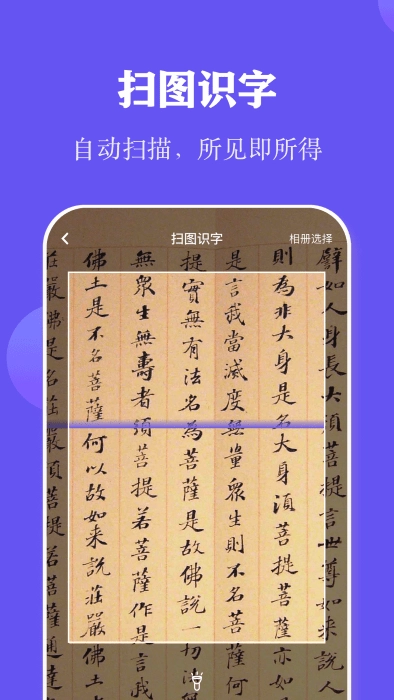 扫图识字
自动扫描，所见即所得
扫图识字
相册选择
譬如人身長大須菩提言世尊如来說人
則為非大身是名大身須菩提菩薩亦如
是言我當滅度無量衆生則不名菩薩何
提實無有法名為菩薩是故佛說一切法
無衆生無壽者須菩提若菩薩作是言我
佛土是不名菩薩何以故如来說莊嚴佛土
莊嚴佛是名莊嚴須菩提若菩薩通達